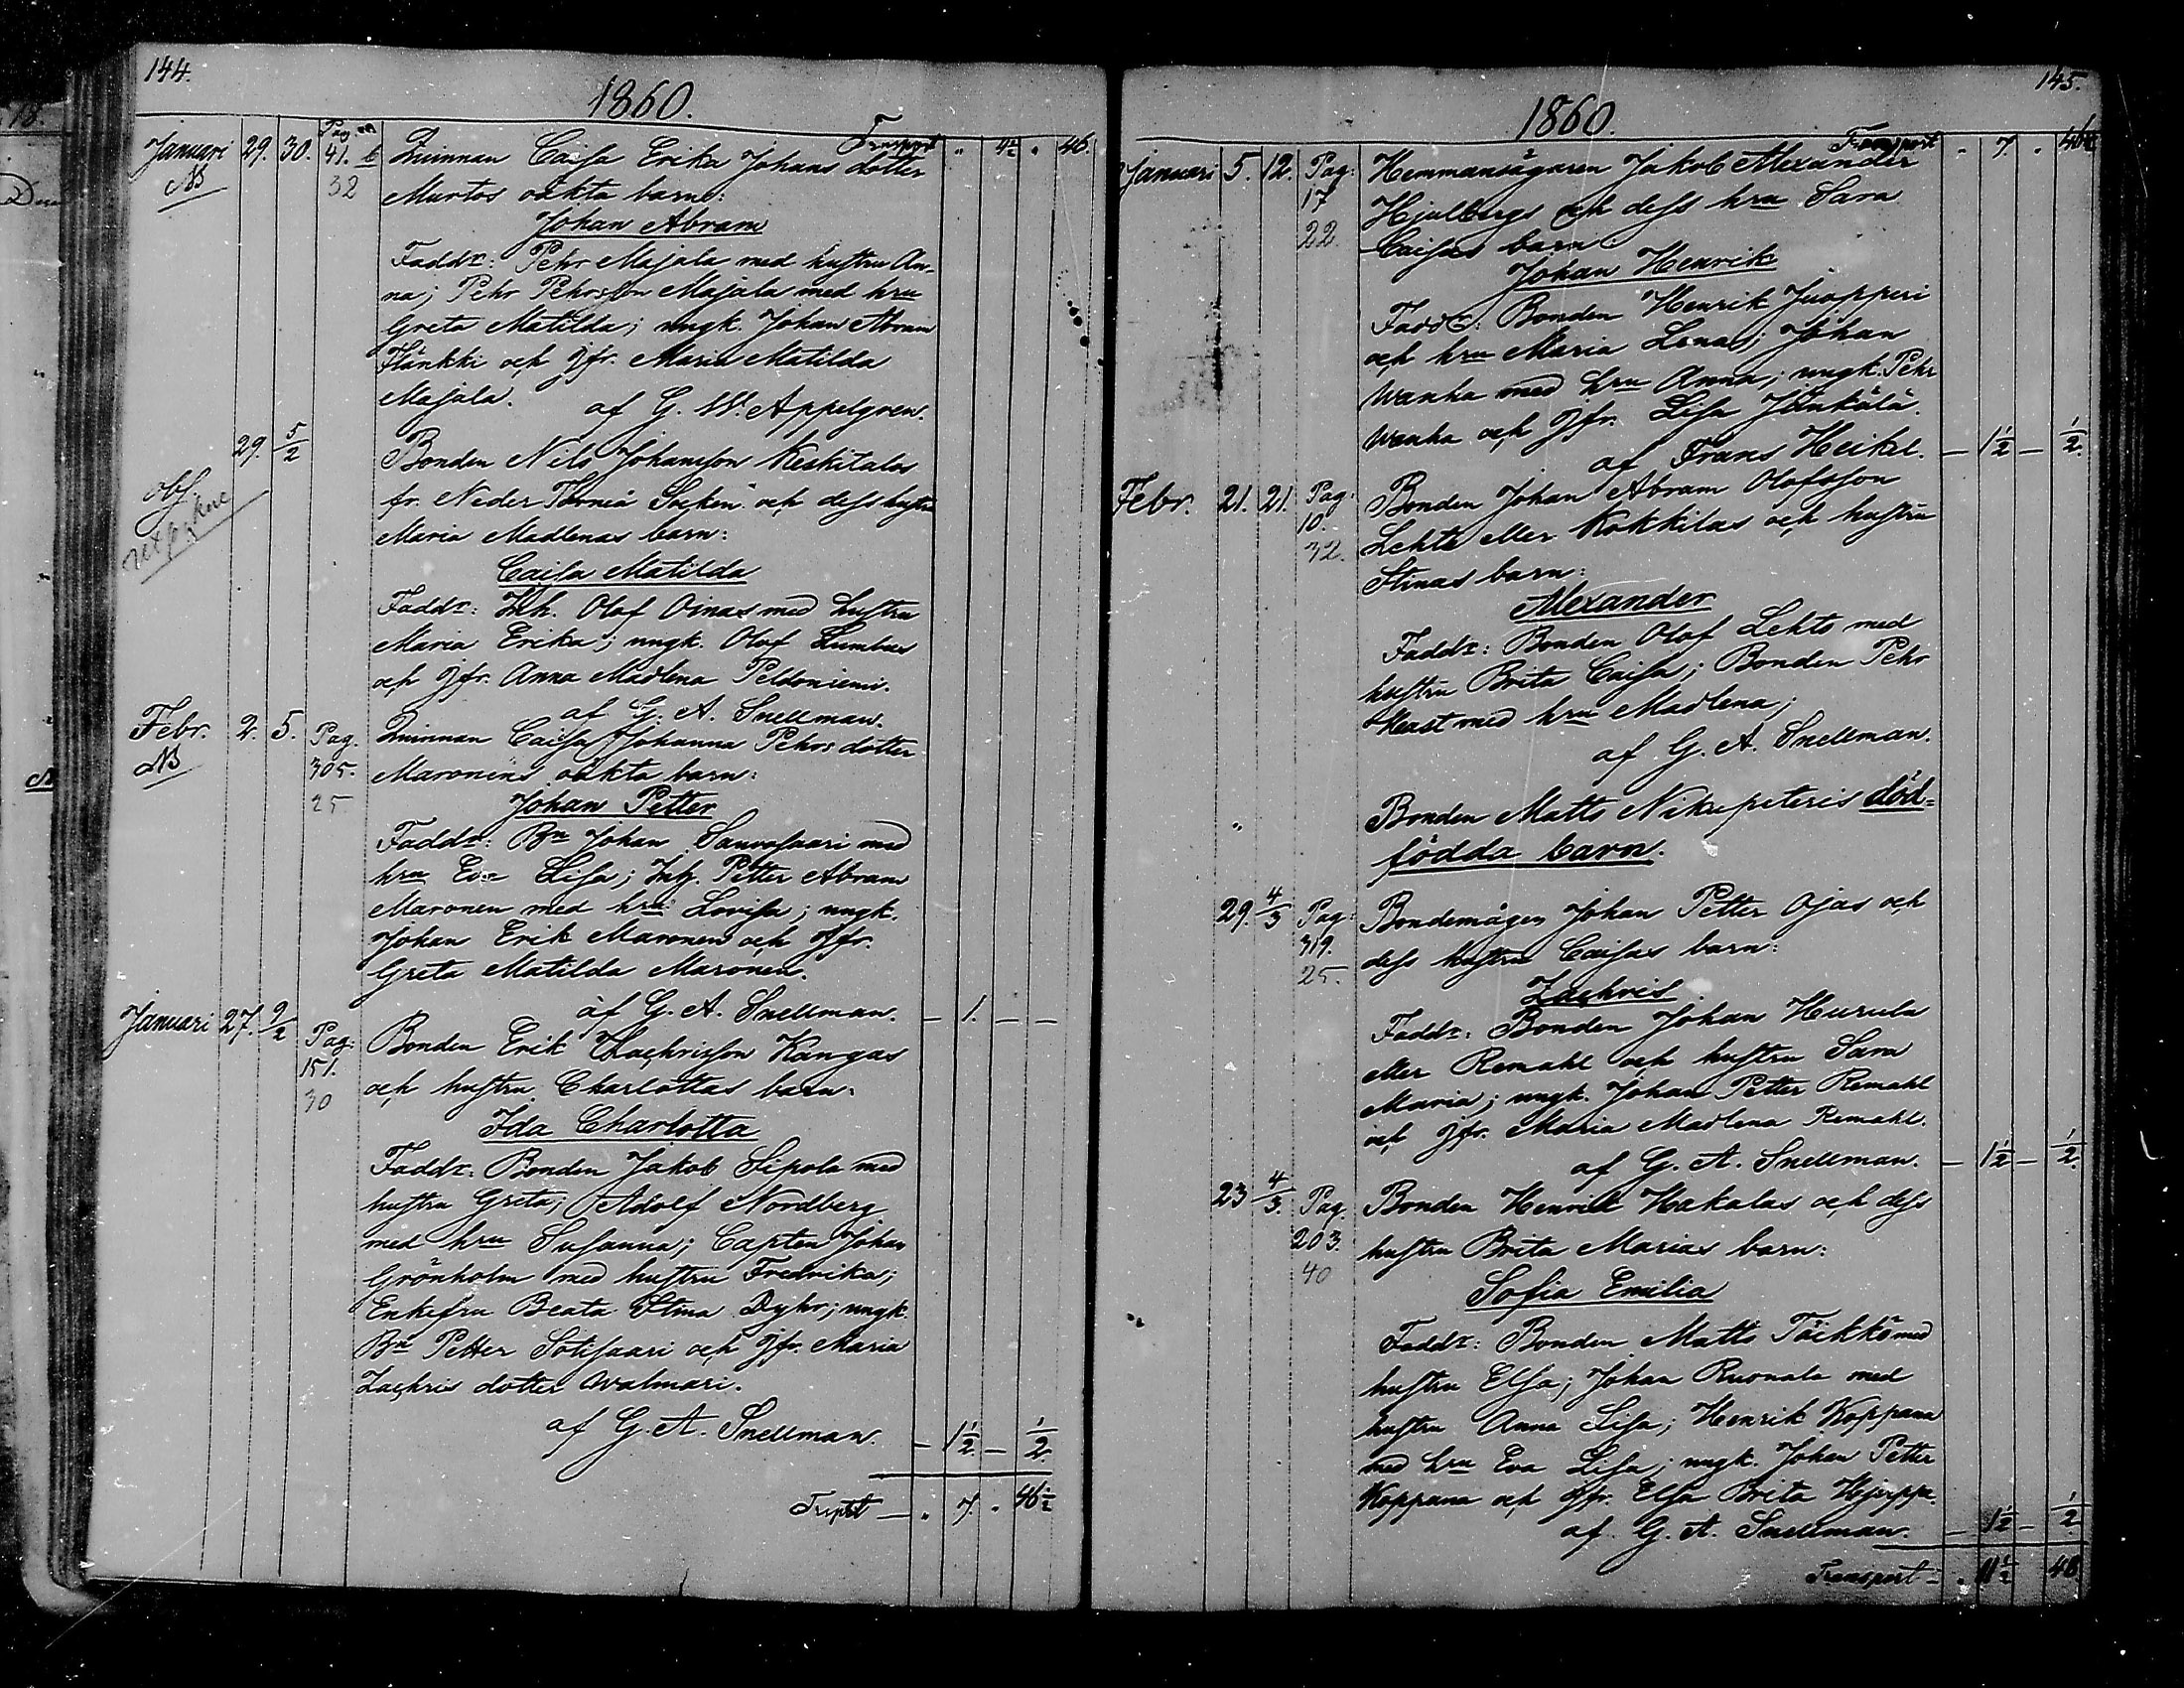 144.
1860.
Transport " 4½ " 46.
Januari 29. 30. Pag. 41. Qvinnan Caisa Erika Johans dotter
NB 32 Murtos oäkta barn:
Johan Abram
Faddr: Pehr Majala med hustru An-
na; Pehr Pehrsson Majala med hru
Greta Matilda; ungk. Johan Abram
Hänkki och Jfr. Maria Matilda
Majala.
af G. W. Appelgren.
29. 5/2 Bonden Nils Johansson Keskitalos
obs. fr. Neder Torneå Socken och dess hustru
Maria Madlenas barn:
Caisa Matilda
Faddr: Inh. Olof Oinas med hustru
Maria Erika; ungk. Olof Lumbus
och Jfr. Anna Madlena Peldoniemi.
af G. A. Snellman.
Febr. 2. 5. Pag. Qvinnan Caisa Johanna Pehrs dotter
NB 305. Maronens oäkta barn:
25 Johan Petter
Faddr: Bn Johan Sauvosaari med
hru Eva Lisa; Inh. Petter Abram
Maronen med hru Lovisa; ungk.
Johan Erik Maronen och Jfr.
Greta Matilda Maronen.
af G. A. Snellman. — 1. — —
Januari 27. 9/2 Pag: Bonden Erik Zachrisson Kangas
151. och hustru Charlottas barn:
30
Ida Charlotta
Faddr: Bonden Jakob Sipola med
hustru Greta; Adolf Nordberg
med hru Susanna; Capten Johan
Grönholm med hustru Fredrika;
Enkefru Beata Stina Dyhr; ungk.
Bn Petter Sotisaari och Jfr. Maria
Zachris dotter Walmari.
af G. A. Snellman. — 1½ — ½.
Trspt — " 7. " 46½
145.
1860.
Transport " 7. " 46½
Januari 5. 12. Pag: Hemmansägaren Jakob Alexander
17 Hjulbergs och dess hru Sara
22. Caisas barn:
Johan Henrik
Faddr: Bonden Henrik Juopperi
och hru Maria Lena; Johan
Wanha med hru Anna; ungk. Pehr
Wanha och Jfr. Lisa Jänkälä.
af Frans Heikel. — 1½ — ½.
Febr. 21. 21. Pag: Bonden Johan Abram Olofsson
10. Lehto eller Kokkilas och hustru
32. Stinas barn:
Alexander
Faddr: Bonden Olof Lehto med
hustru Brita Caisa; Bonden Pehr
Heast med hru Madlena;
af G. A. Snellman.
" Bonden Matts Nikupeteris död-
födda barn.
29. 4/3 Pag: Bondemågen Johan Petter Ojas och
319. dess hustru Caisas barn:
25.
Zachris
Faddr: Bonden Johan Hurula
eller Remahl och hustru Sara
Maria; ungk. Johan Petter Remahl
och Jfr. Maria Madlena Remahl.
af G. A. Snellman. — 1½ — ½.
23 4/3. Pag. Bonden Henrik Hakalas och dess
203. hustru Brita Marias barn:
40
Sofia Emilia
Faddr: Bonden Matts Töikkö med
hustru Elsa; Johan Ruonala med
hustru Anna Lisa; Henrik Koppana
med hru Eva Lisa; ungk. Johan Petter
Koppana och Jfr. Elsa Brita Hjerppe.
af G. A. Snellman. — 1½ — ½
Transport — " 11½ 48